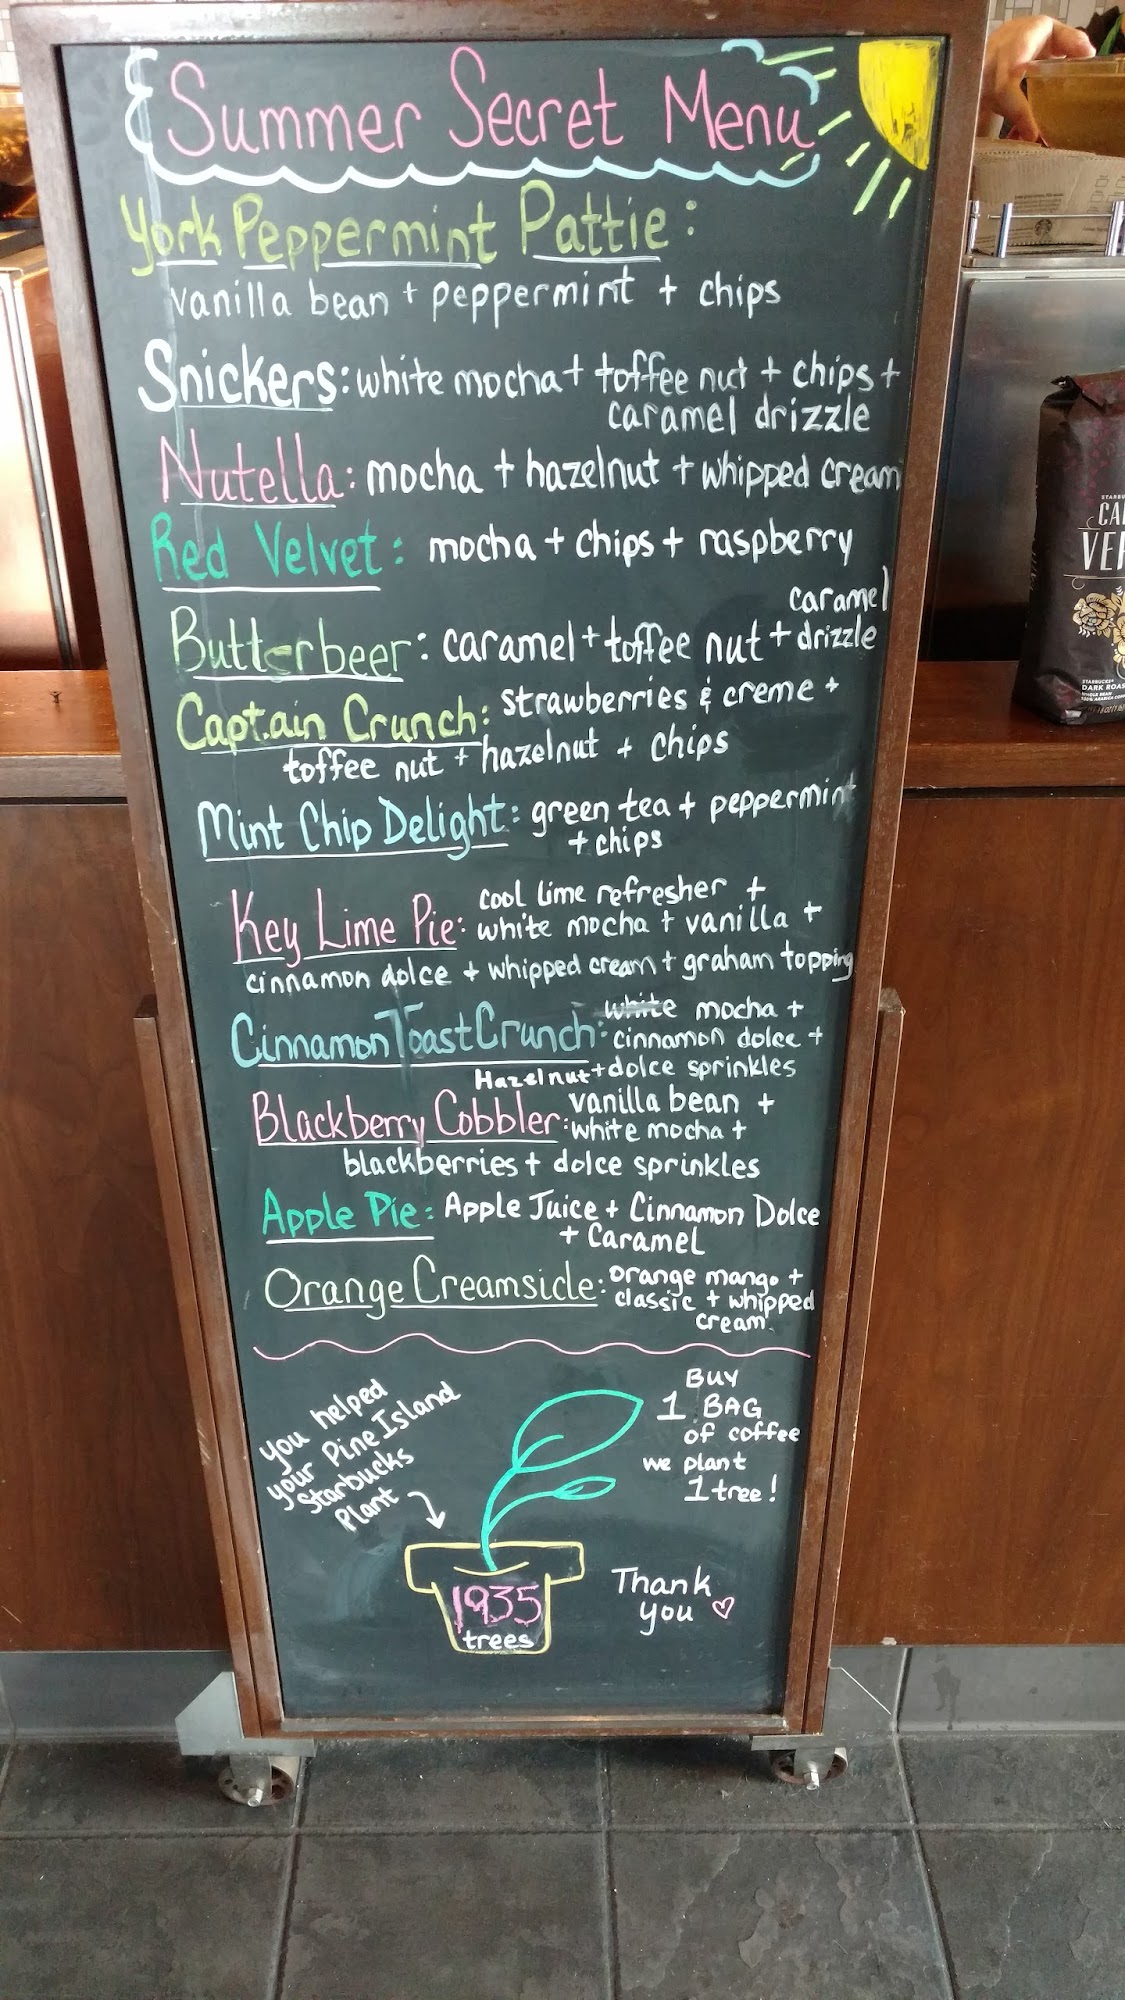 Summer Secret Menu
York Peppermint Pattie:
vanilla bean + peppermint + chips
Snickers: white mocha + toffee nut + chips +
caramel drizzle
Nutella: mocha + hazelnut + whipped cream
Red Velvet: mocha + chips + raspberry
caramel
Butterbeer: caramel + toffee nut + drizzle
Captain Crunch: strawberries & creme +
toffee nut + hazelnut + chips
Mint Chip Delight: green tea + peppermint
+ chips
cool lime refresher +
Key Lime Pie: white mocha + vanilla +
cinnamon dolce + whipped cream + graham topping
white mocha +
Cinnamon Toast Crunch: cinnamon dolce +
Hazelnut + dolce sprinkles
vanilla bean +
Blackberry Cobbler: white mocha +
blackberries + dolce sprinkles
Apple Pie: Apple Juice + Cinnamon Dolce
+ Caramel
Orange Creamsicle: orange mango +
classic + whipped
cream.
you helped
your Pine Island
Starbucks
Plant
1935
trees
BUY
1 BAG
of coffee
we plant
1 tree!
Thank
you
STARBU
CA
VE
STARBUCKS
DARK ROAS
WHOLE BEAN